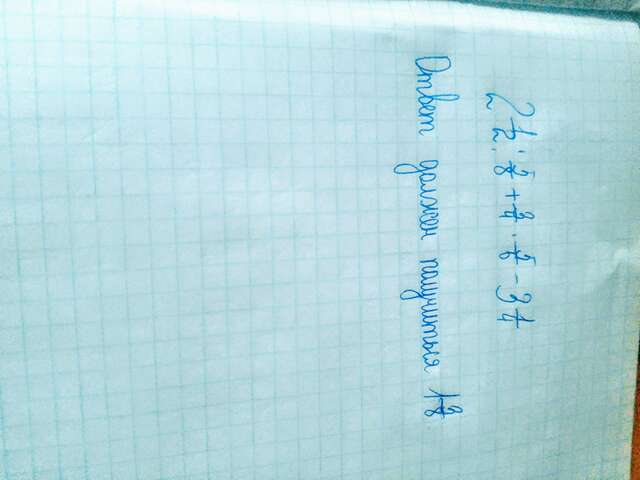 2 1/2 : 5/8 + 3/4 · 5/6 - 3 1/4
Ответ должен получиться 1 3/8